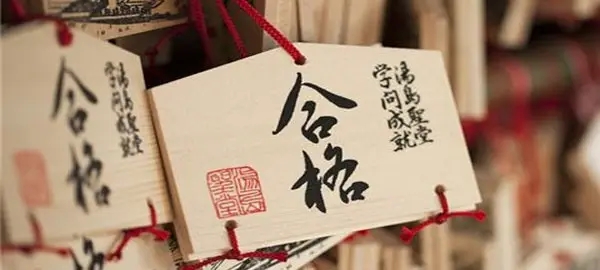 湯島聖堂
学問成就
合格
湯島
聖堂
湯島聖堂
学問成就
合格
合